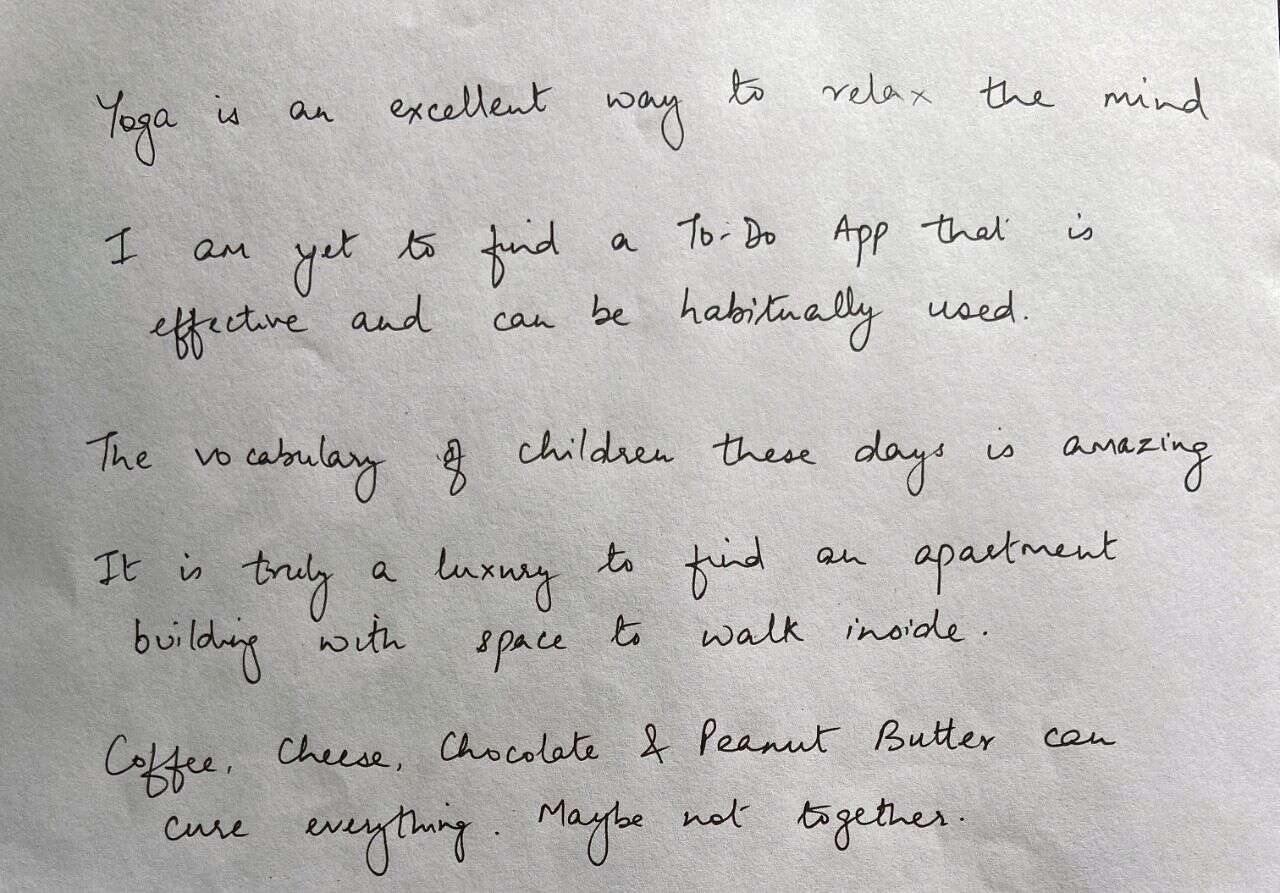 Yoga is an excellent way to relax the mind
I am yet to find a To-Do App that is
effective and can be habitually used.
The vocabulary of children these days is amazing
It is truly a luxury to find an apartment
building with space to walk inside.
Coffee, Cheese, Chocolate & Peanut Butter can
cure everything. Maybe not together.